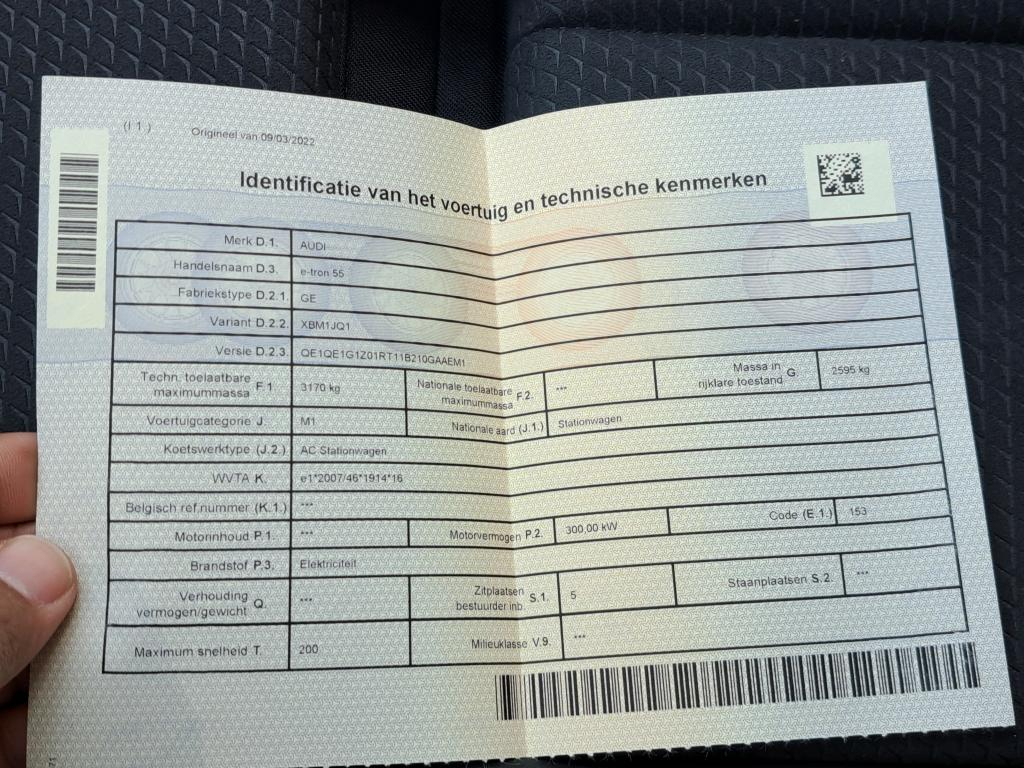 (I 1)
Origineel van 09/03/2022
Identificatie van het voertuig en technische kenmerken
Merk D.1. AUDI
Handelsnaam D.3. e-tron 55
Fabriekstype D.2.1. GE
Variant D.2.2. XBM1JQ1
Versie D.2.3. QE1QE1G1Z01RT11B210GAAEM1
Techn. toelaatbare maximummassa F.1. 3170 kg Nationale toelaatbare maximummassa F.2. *** Massa in rijklare toestand G. 2595 kg
Voertuigcategorie J. M1 Nationale aard (J.1.) Stationwagen
Koetswerktype (J.2.) AC Stationwagen
WVTA K. e1*2007/46*1914*16
Belgisch ref.nummer (K.1.) ***
Motorinhoud P.1. *** Motorvermogen P.2. 300,00 kW Code (E.1.) 153
Brandstof P.3. Elektriciteit
Verhouding vermogen/gewicht Q. *** Zitplaatsen bestuurder inb. S.1. 5 Staanplaatsen S.2. ***
Maximum snelheid T. 200 Milieuklasse V.9. ***